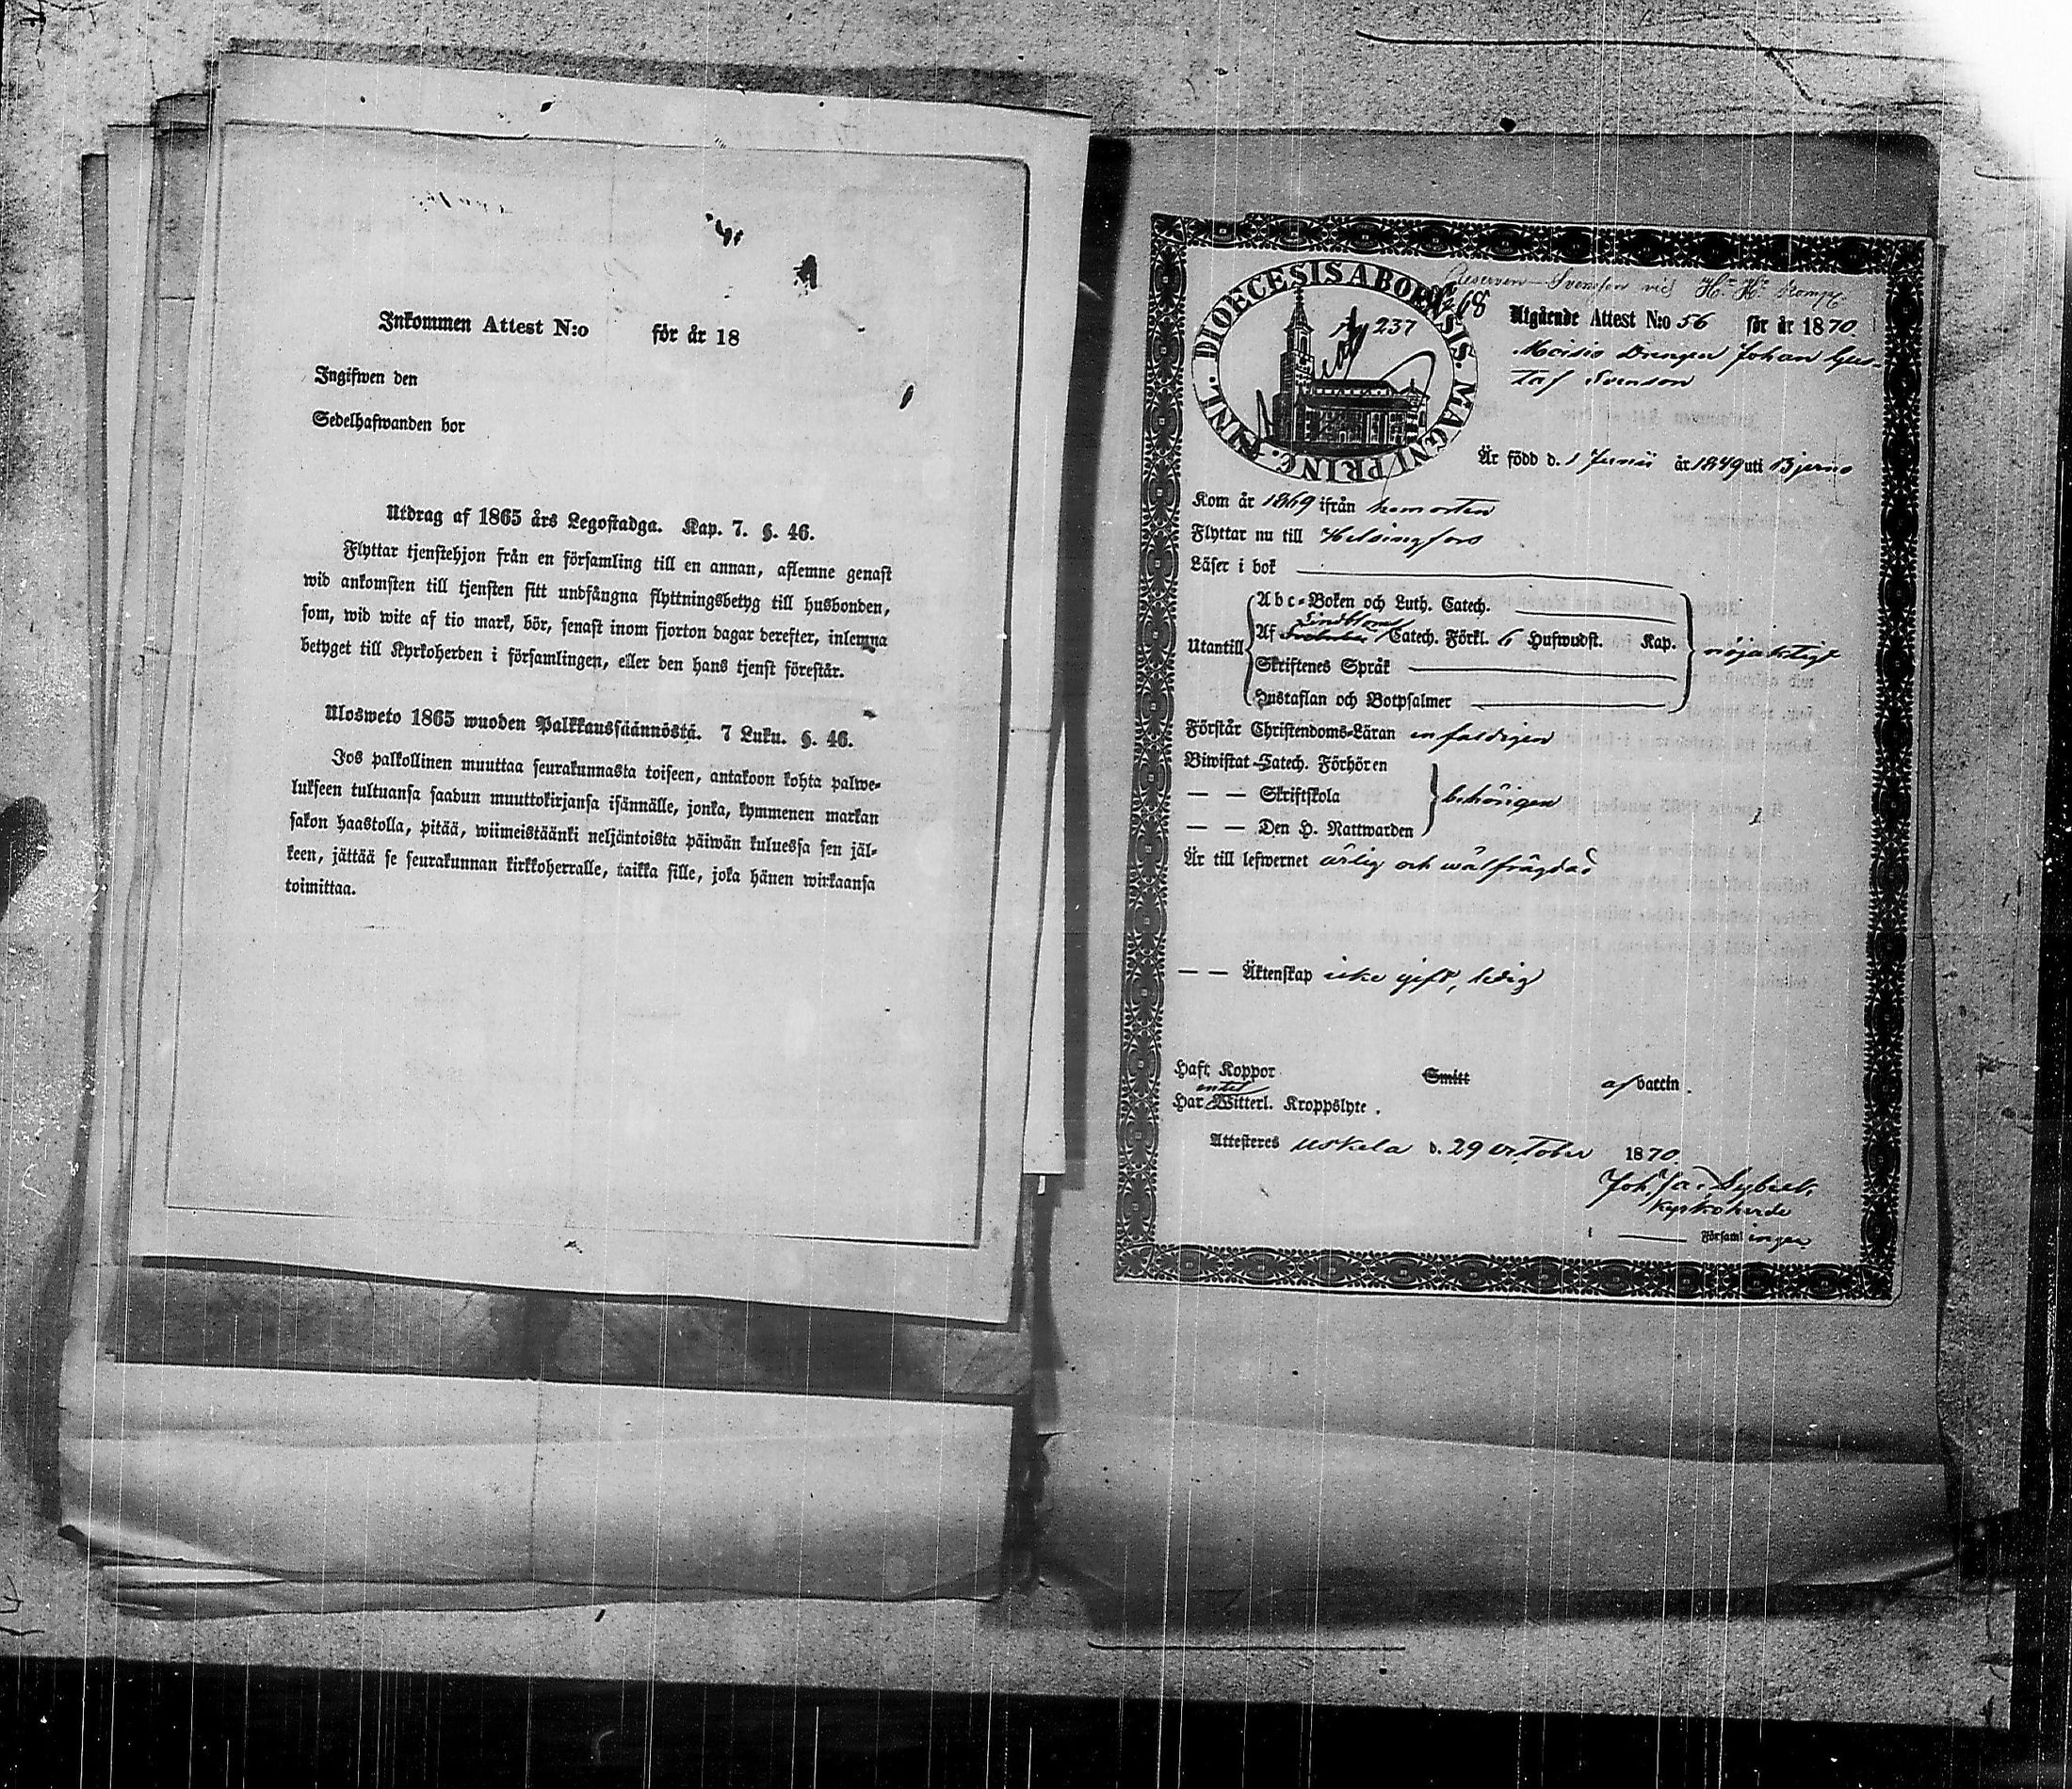 Inkommen Attest N:o för år 18
Ingifwen den
Sedelhafwanden bor
Utdrag af 1865 års Legostadga. Kap. 7. §. 46.
Flyttar tjenstehjon från en församling till en annan, aflemne genast
wid ankomsten till tjensten sitt undfångna flyttningsbetyg till husbonden,
som, wid wite af tio mark, bör, senast inom fjorton dagar derefter, inlemna
betyget till Kyrkoherden i församlingen, eller den hans tjenst förestår.
Ulosweto 1865 wuoden Palkkaussäännöstä. 7 Luku. §. 46.
Jos palkollinen muuttaa seurakunnasta toiseen, antakoon kohta palwe-
lukseen tultuansa saadun muuttokirjansa isännälle, jonka, kymmenen markan
sakon haastolla, pitää, wiimeistäänki neljäntoista päiwän kuluessa sen jäl-
keen, jättää se seurakunnan kirkkoherralle, taikka sille, joka hänen wirkaansa
toimittaa.
Svensson vid
DIOECESIS ABOENSIS. MAGNI PRINC. FINL.
68
237
Utgående Attest N:o 56 för år 1870
Drengen Johan Gus-
taf Svenson
Är född d. 1 Junii år 1849 uti Bjerno
Kom år 1869 ifrån hemorten
Flyttar nu till Helsingfors
Läser i bok
Utantill
Abc-Boken och Luth. Catech.
Lindbloms
Af Catech. Förkl. 6 Hufwudst. Kap.
Skriftenes Språk
Hustaflan och Botpsalmer
nöjaktigt
Förstår Christendoms-Läran enfaldigen
Biwistat Catech. Förhören
— — Skriftskola
behörigen
— — Den H. Nattwarden
Är till lefwernet ärlig och wälfrägdad
— — Äktenskap icke gift, ledig
Haft Koppor Smitt af vaccin.
intet
Har Witterl. Kroppslyte.
Attesteres Uskela d. 29 October 1870.
Joh.
Kyrkoherde
Församlingen